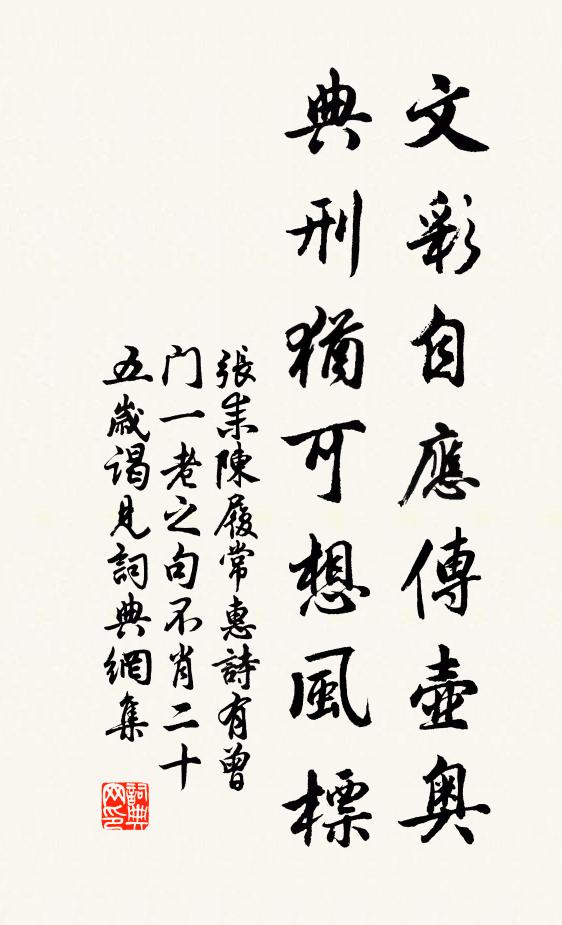 文彩自應傳壺奧
典刑猶可想風標
張耒陳履常惠詩有曾
门一老之句不肖二十
五歲謁見詞典網集
詞典
网印